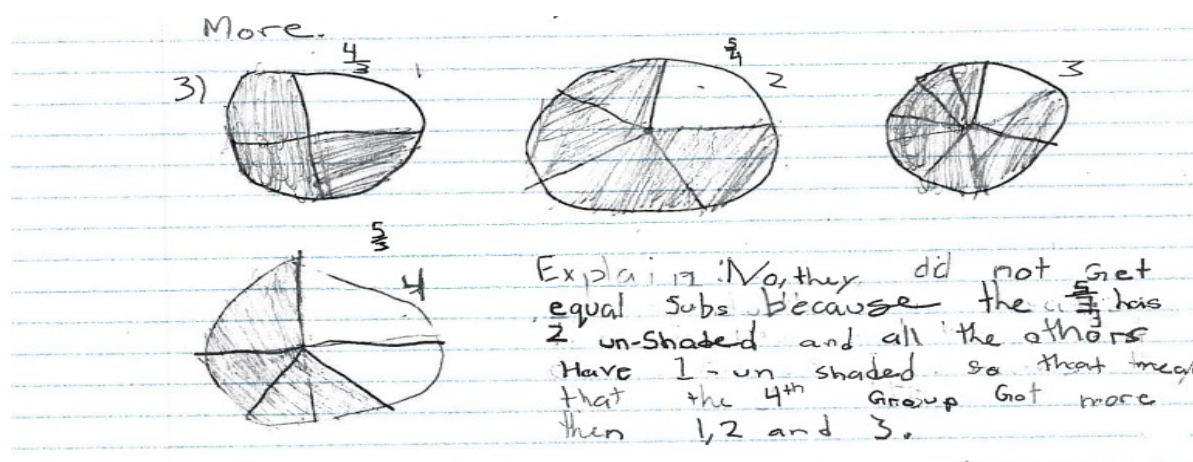 More.
3)
4/3 1
5/4 2
3
5/3 4
Explain: No, they did not Get
equal Subs because the 5/3 has
2 un-shaded and all the others
Have 1-un shaded so that mea
that the 4th Group Got more
then 1,2 and 3.